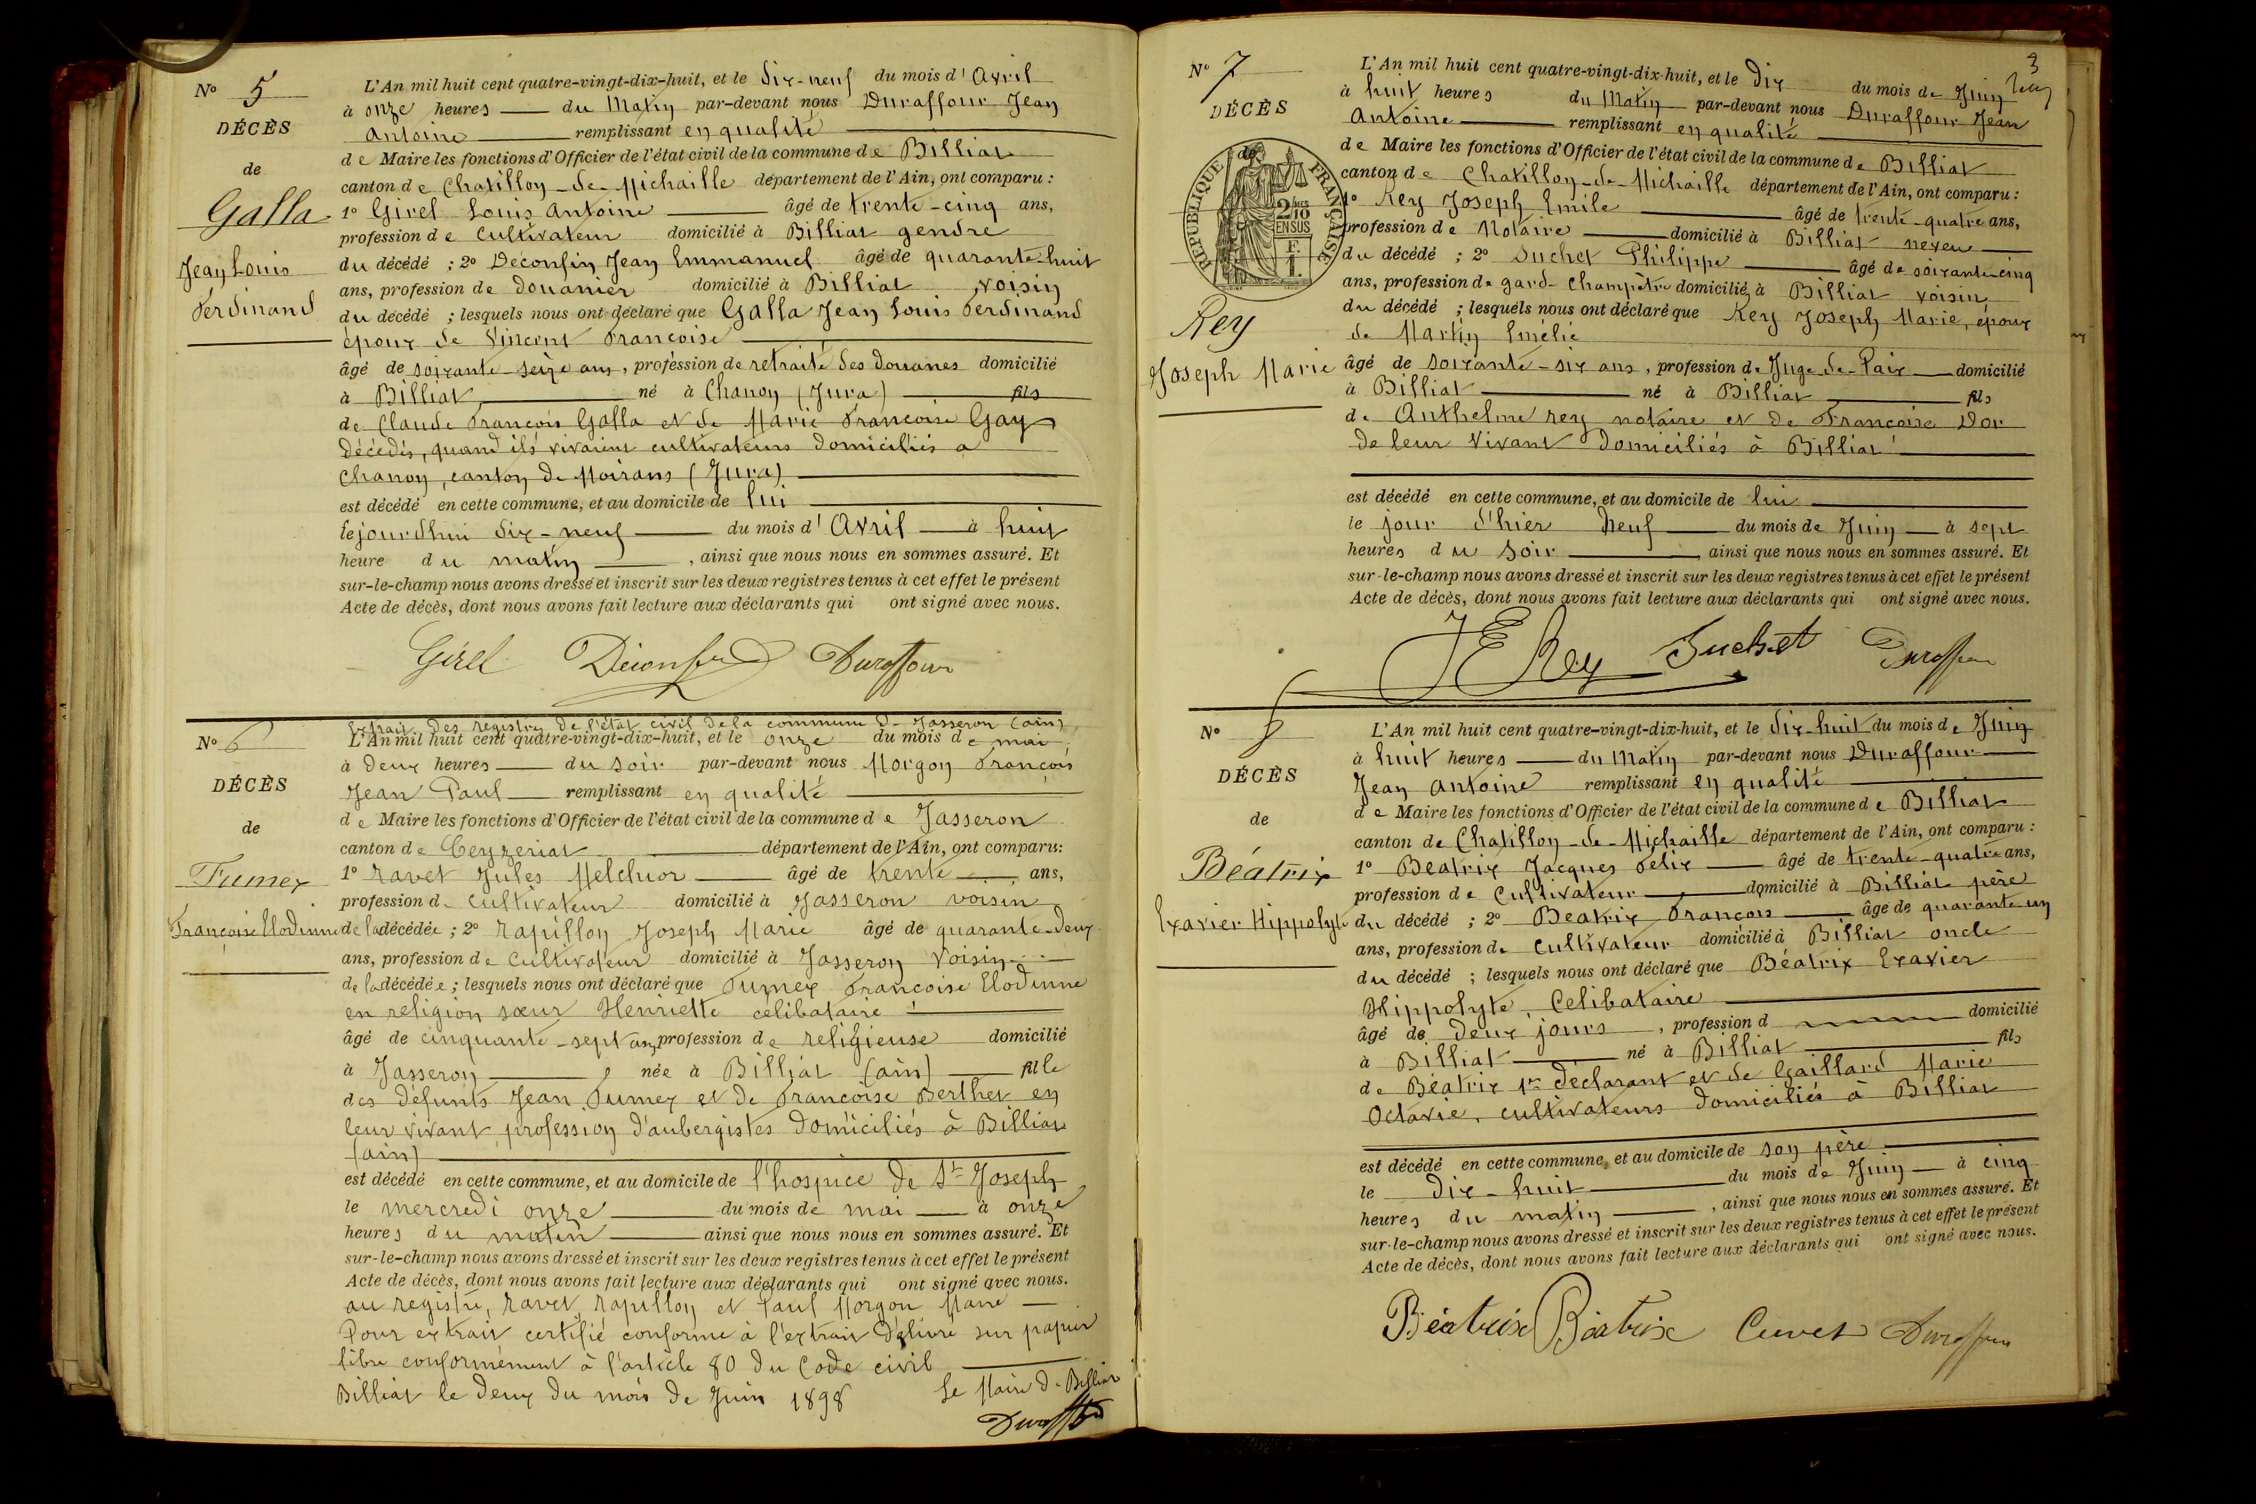 N° 5
DÉCÈS
de
Galla
Jean Louis
Ferdinand
L'An mil huit cent quatre-vingt-dix-huit, et le dix-neuf du mois d' Avril
à onze heures du Matin par-devant nous Duraffour Jean
Antoine remplissant en qualité
de Maire les fonctions d'Officier de l'état civil de la commune de Billiat
canton de Chatillon-de-Michaille département de l'Ain, ont comparu :
1° Girel Louis Antoine âgé de trente-cinq ans,
profession de Cultivateur domicilié à Billiat gendre
du décédé ; 2° Déconfin Jean Emmanuel âgé de quarante-huit
ans, profession de Douanier domicilié à Billiat voisin
du décédé ; lesquels nous ont déclaré que Galla Jean Louis Ferdinand
époux de Vincent Françoise
âgé de soixante-seize ans, profession de retraité des Douanes domicilié
à Billiat né à Chanon (Jura) fils
de Claude François Galla et de Marie Françoise Gay
Décédés, quand ils vivaient cultivateurs domiciliés a
Chanon, canton de Moirans (Jura)
est décédé en cette commune, et au domicile de lui
le jourdhui dix-neuf du mois d' Avril à huit
heure du matin, ainsi que nous nous en sommes assuré. Et
sur-le-champ nous avons dressé et inscrit sur les deux registres tenus à cet effet le présent
Acte de décès, dont nous avons fait lecture aux déclarants qui ont signé avec nous.
Girel Déconfin Duraffour
N° 6
DÉCÈS
de
Fumex
Françoise Elodinne
Extrait des registres de l'état civil de la commune de Jasseron (ain)
L'An mil huit cent quatre-vingt-dix-huit, et le onze du mois de mai,
à deux heures du soir par-devant nous Morgon François
Jean Paul remplissant en qualité
de Maire les fonctions d'Officier de l'état civil de la commune de Jasseron
canton de Ceyzeriat département de l'Ain, ont comparu:
1° Ravet Jules Melchior âgé de trente ans,
profession de cultivateur domicilié à Jasseron voisin
de la décédée ; 2° Rapillon Joseph Marie âgé de quarante-deux
ans, profession de cultivateur domicilié à Jasseron Voisin
de la décédée ; lesquels nous ont déclaré que Fumex Françoise Elodinne
en religion sœur Henriette célibataire
âgé de cinquante-sept ans, profession de religieuse domicilié
à Jasseron, née à Billiat (ain) fille
des défunts Jean Fumex et de Françoise Berthet en
leur vivant profession d'aubergistes domiciliés à Billiat
(ain)
est décédé en cette commune, et au domicile de l'hospice de St Joseph
le mercredi onze du mois de mai à onze
heures du matin ainsi que nous nous en sommes assuré. Et
sur-le-champ nous avons dressé et inscrit sur les deux registres tenus à cet effet le présent
Acte de décès, dont nous avons fait lecture aux déclarants qui ont signé avec nous.
au registre, Ravet, Rapillon et Paul Morgon Maire
Pour extrait certifié conforme à l'extrait délivré sur papier
libre conformément à l'article 80 du Code civil
Billiat le deux du mois de Juin 1898 Le Maire de Billiat
Duraffour
3
N° 7
DÉCÈS
de
RÉPUBLIQUE FRANÇAISE
2/10 EN SUS
Rey
Joseph Marie
L'An mil huit cent quatre-vingt-dix-huit, et le dix du mois de Juin
à huit heures du Matin par-devant nous Duraffour Jean
Antoine remplissant en qualité
de Maire les fonctions d'Officier de l'état civil de la commune de Billiat
canton de Chatillon-de-Michaille département de l'Ain, ont comparu :
1° Rey Joseph Emile âgé de trente-quatre ans,
profession de Notaire domicilié à Billiat neveu
du décédé ; 2° Suchet Philippe âgé de soixante-cinq
ans, profession de garde Champêtre domicilié à Billiat voisin
du décédé ; lesquels nous ont déclaré que Rey Joseph Marie, époux
de Martin Emélie
âgé de soixante-six ans, profession de Juge-de-Paix domicilié
à Billiat né à Billiat fils
de Anthelme rey notaire et de Françoise Dor
de leur vivant domiciliés à Billiat
est décédé en cette commune, et au domicile de lui
le jour d'hier neuf du mois de Juin à sept
heures du soir ainsi que nous nous en sommes assuré. Et
sur-le-champ nous avons dressé et inscrit sur les deux registres tenus à cet effet le présent
Acte de décès, dont nous avons fait lecture aux déclarants qui ont signé avec nous.
JE Rey Suchet Duraffour
N° 8
DÉCÈS
de
Béatrix
Exavier Hippolyte
L'An mil huit cent quatre-vingt-dix-huit, et le dix-huit du mois de Juin
à huit heures du Matin par-devant nous Duraffour
Jean Antoine remplissant en qualité
de Maire les fonctions d'Officier de l'état civil de la commune de Billiat
canton de Chatillon-de-Michaille département de l'Ain, ont comparu :
1° Beatrix Jacques Félix âgé de trente-quatre ans,
profession de Cultivateur domicilié à Billiat père
du décédé ; 2° Beatrix François âgé de quarante un
ans, profession de Cultivateur domicilié à Billiat oncle
du décédé ; lesquels nous ont déclaré que Béatrix Exavier
Hippolyte, Celibataire
âgé de Deux jours, profession d domicilié
à Billiat né à Billiat fils
de Béatrix 1er déclarant et de Gaillard Marie
Octavie, cultivateurs domiciliés à Billiat
est décédé en cette commune, et au domicile de son père
le dix-huit du mois de Juin à cinq
heures du matin, ainsi que nous nous en sommes assuré. Et
sur-le-champ nous avons dressé et inscrit sur les deux registres tenus à cet effet le présent
Acte de décès, dont nous avons fait lecture aux déclarants qui ont signé avec nous.
Béatrix Béatrix Cuvet Duraffour